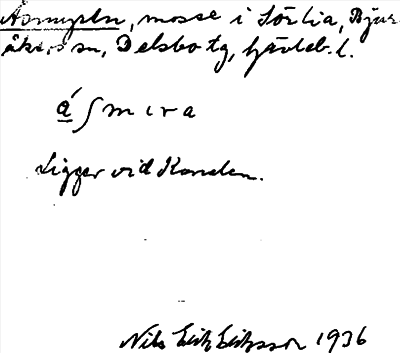 Åsmyren, mosse i Sörlia, Bjur-
åkers sn, Delsbo tg, Hävleb. l.
á ʃ m ɩ r a
Ligger vid Kanden.
Nils Erik Eriksson 1936